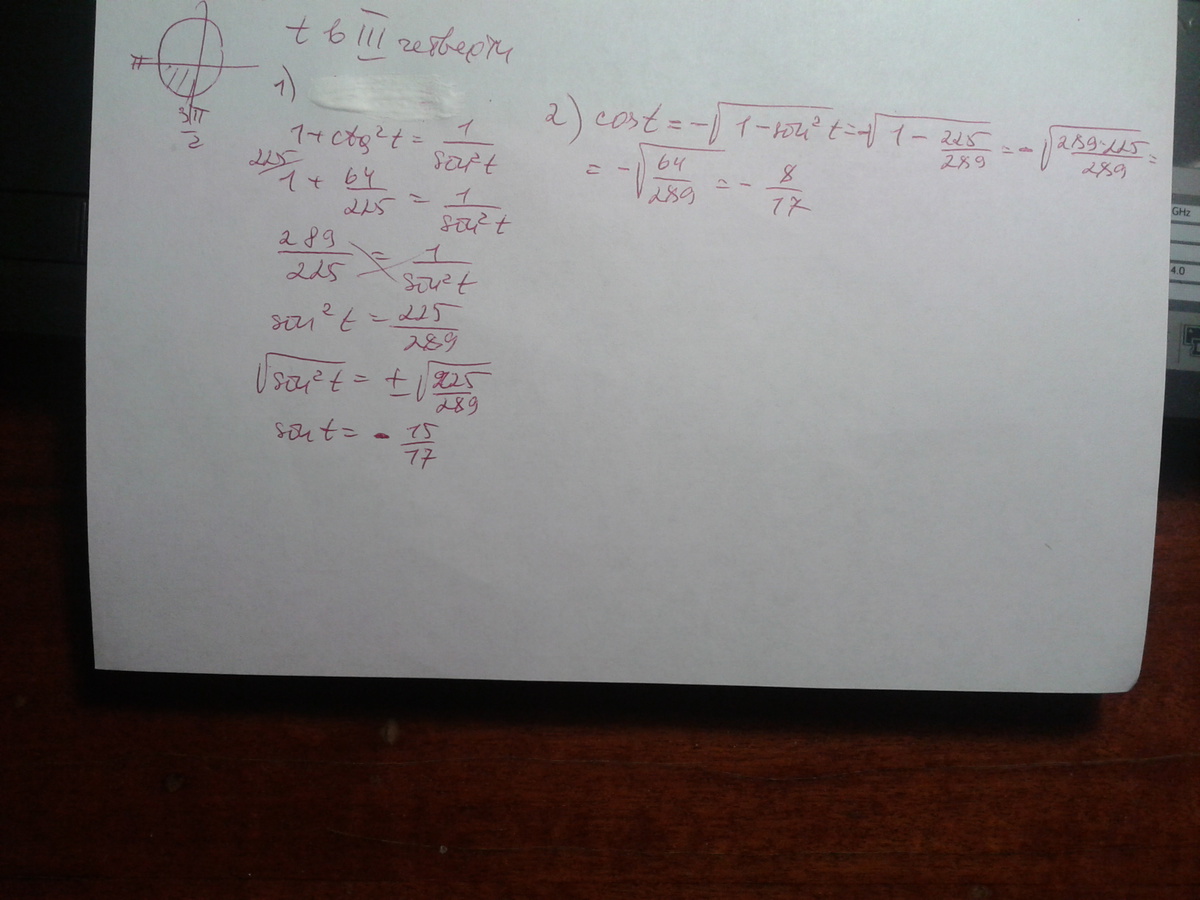 t в III четверти
π
3π/2
1)
1+ctg²t = 1/sin²t
225/ 1 + 64/225 = 1/sin²t
289/225 = 1/sin²t
sin²t = 225/289
√sin²t = ± √225/289
sin t = - 15/17
2) cost = -√1-sin²t = -√1 - 225/289 = -√289-225/289 =
= -√64/289 = - 8/17
GHz
4.0